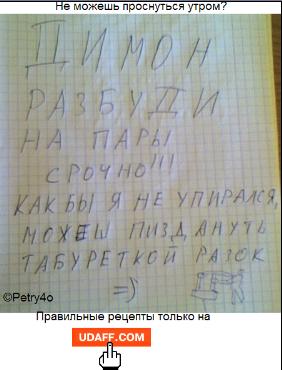 Не можешь проснуться утром?
ДИМОН
РАЗБУДИ
НА ПАРЫ
СРОЧНО!!!
КАК БЫ Я НЕ УПИРАЛСЯ,
МОЖЕШ ПИЗДАНУТЬ
ТАБУРЕТКОЙ РАЗОК
=)
©Petry4o
Правильные рецепты только на
UDAFF.COM